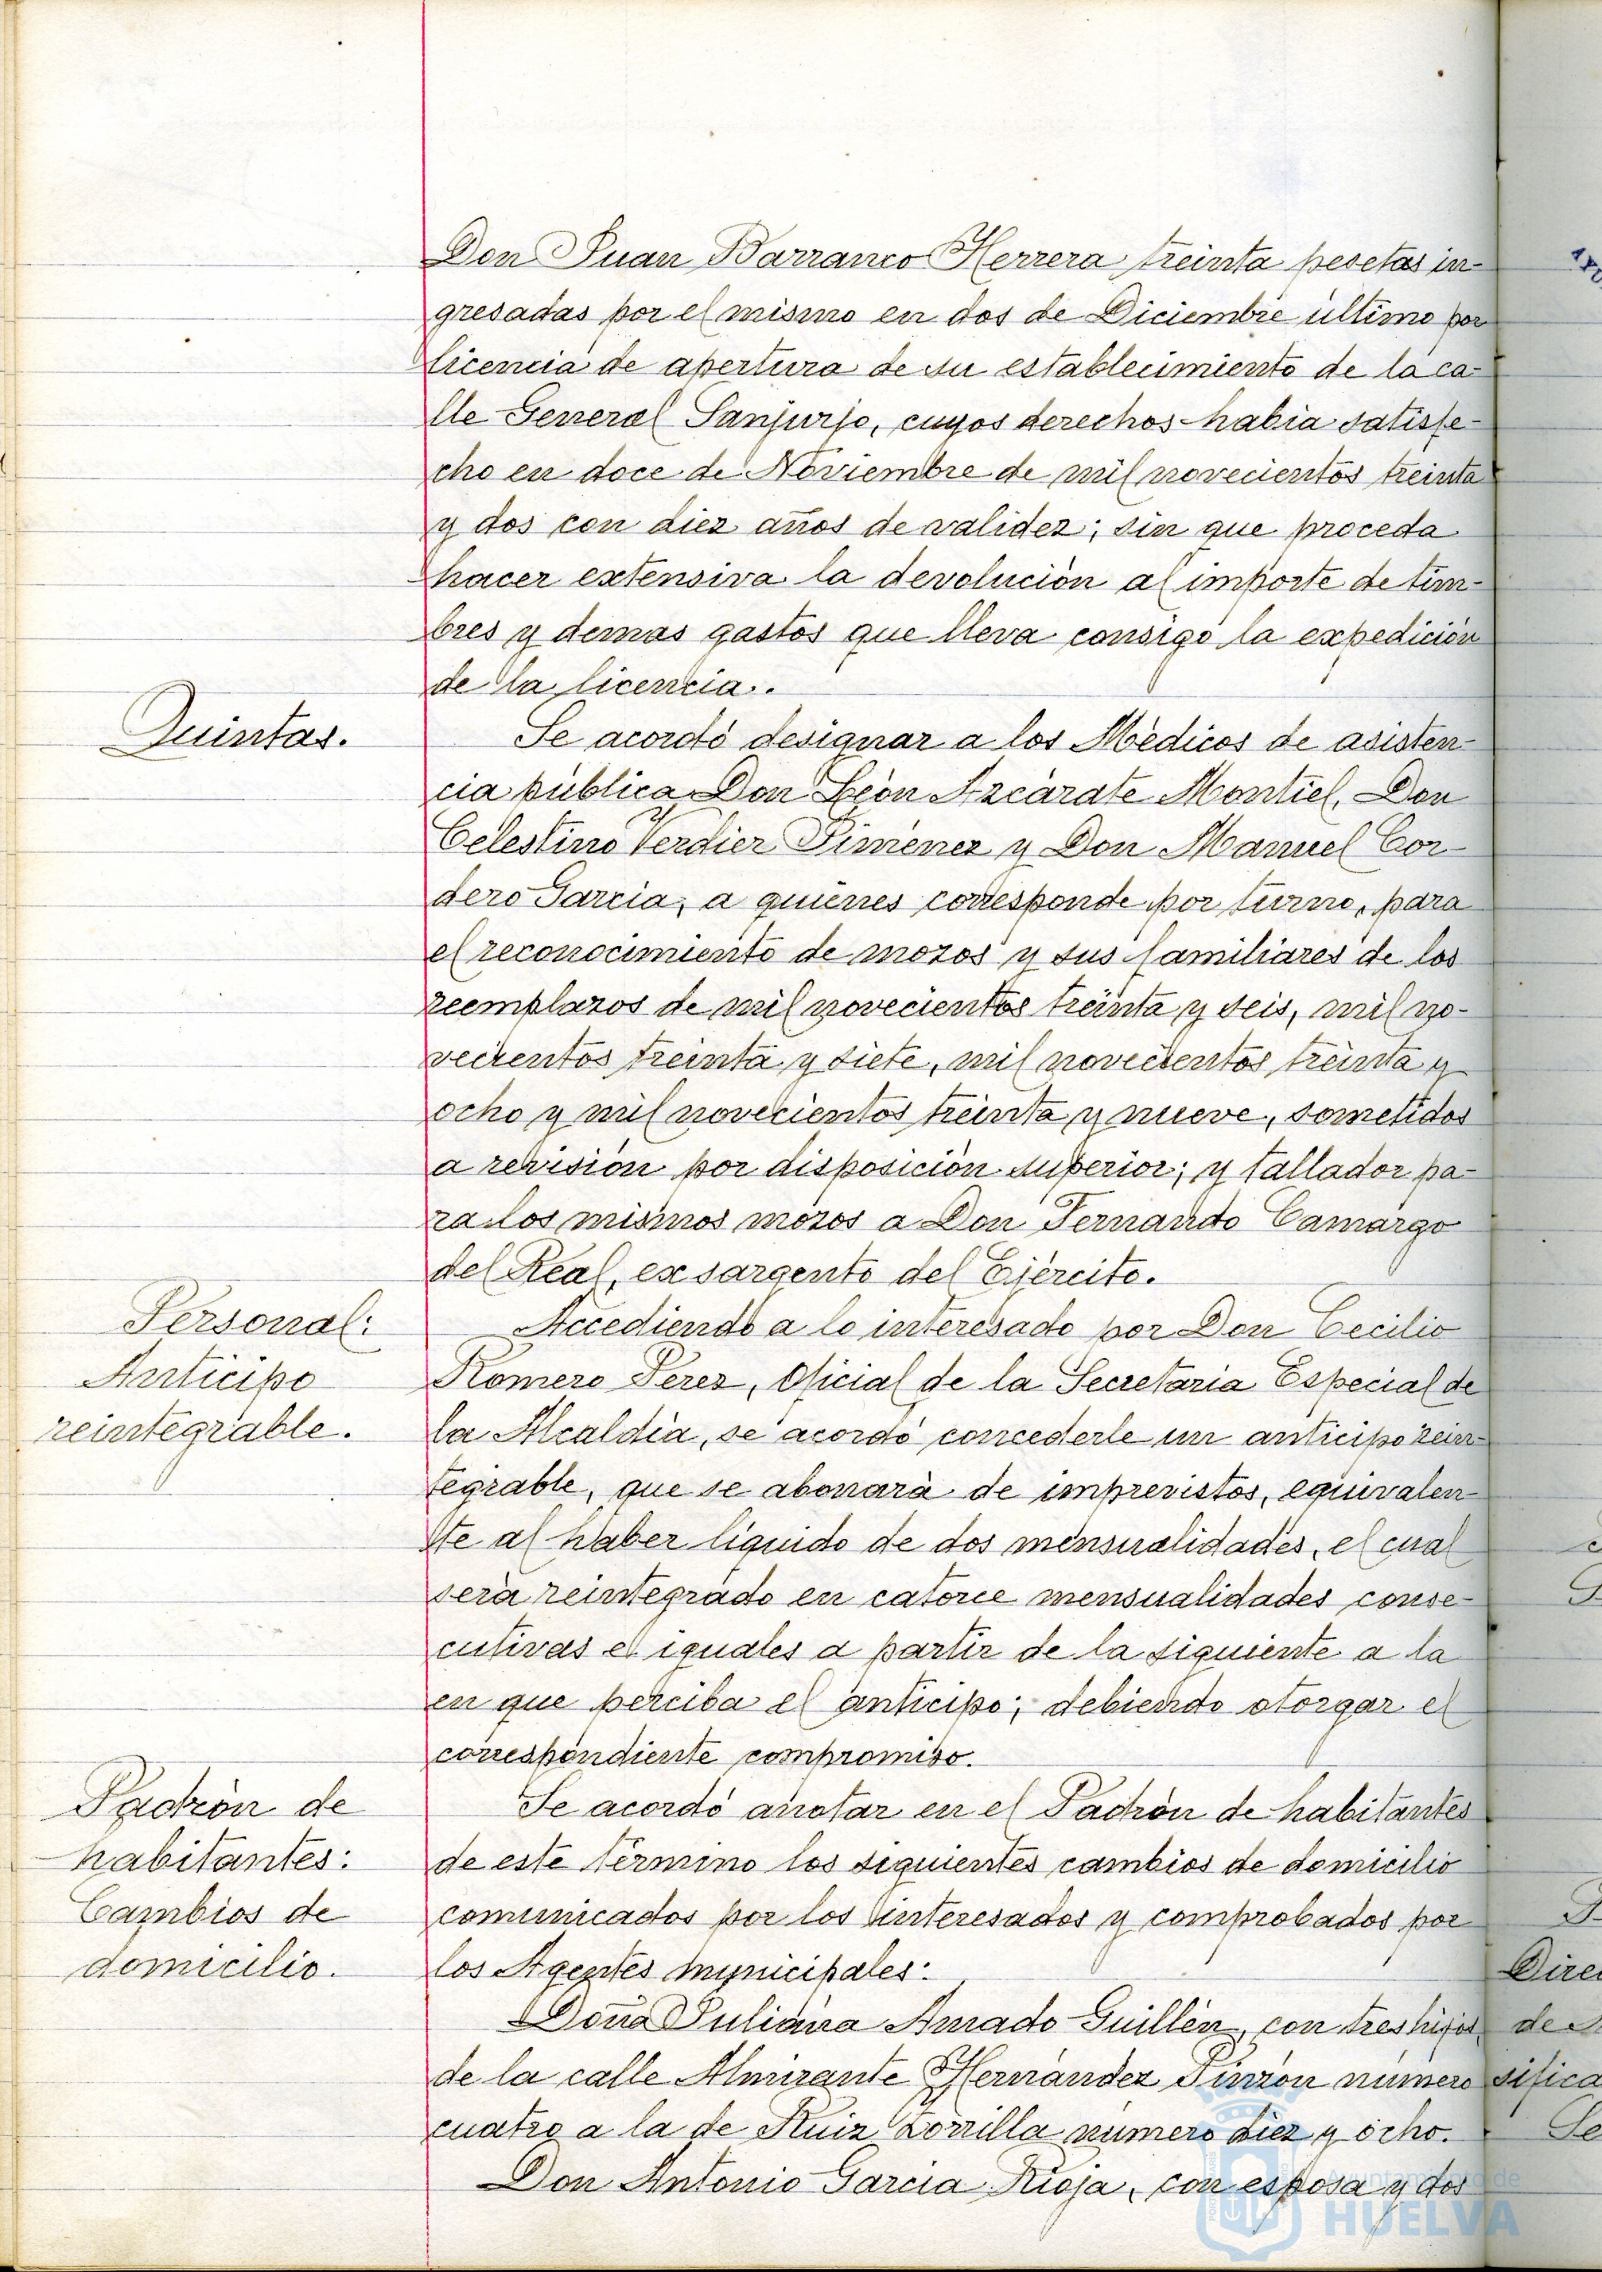 Don Juan Barranco Herrera treinta pesetas in-
gresadas por el mismo en dos de Diciembre último por
licencia de apertura de su establecimiento de la ca-
lle General Sanjurjo, cuyos derechos habia satisfe-
cho en doce de Noviembre de mil novecientos treinta
y dos con diez años de validez; sin que proceda
hacer extensiva la devolución al importe de tim-
bres y demas gastos que lleva consigo la expedición
de la licencia.
Quintas.
Se acordó designar a los Médicos de asisten-
cia pública Don León Azcárate Montiel, Don
Celestino Verdier Jimenez y Don Manuel Cor-
dero Garcia, a quienes corresponde por turno, para
el reconocimiento de mozos y sus familiares de los
reemplazos de mil novecientos treinta y seis, mil no-
vecientos treinta y siete, mil novecientos treinta y
ocho y mil novecientos treinta y nueve, sometidos
a revisión por disposición superior; y tallador pa-
ra los mismos mozos a Don Fernando Camargo
del Real, ex sargento del Ejército.
Personal:
Anticipo
reintegrable.
Accediendo a lo interesado por Don Cecilio
Romero Perez, Oficial de la Secretaria Especial de
la Alcaldía, se acordó concederle un anticipo rein-
tegrable, que se abonará de imprevistos, equivalen-
te al haber líquido de dos mensualidades, el cual
será reintegrado en catorce mensualidades conse-
cutivas e iguales a partir de la siguiente a la
en que perciba el anticipo; debiendo otorgar el
correspondiente compromiso.
Padrón de
habitantes:
Cambios de
domicilio.
Se acordó anotar en el Padrón de habitantes
de este término los siguientes cambios de domicilio
comunicados por los interesados y comprobados por
los Agentes municipales:
Doña Juliana Amado Guillén, con tres hijos,
de la calle Almirante Hernández Pinzón número
cuatro a la de Ruiz Zorrilla número diez y ocho.
Don Antonio Garcia Rioja, con esposa y dos
Ayuntamiento de
HUELVA